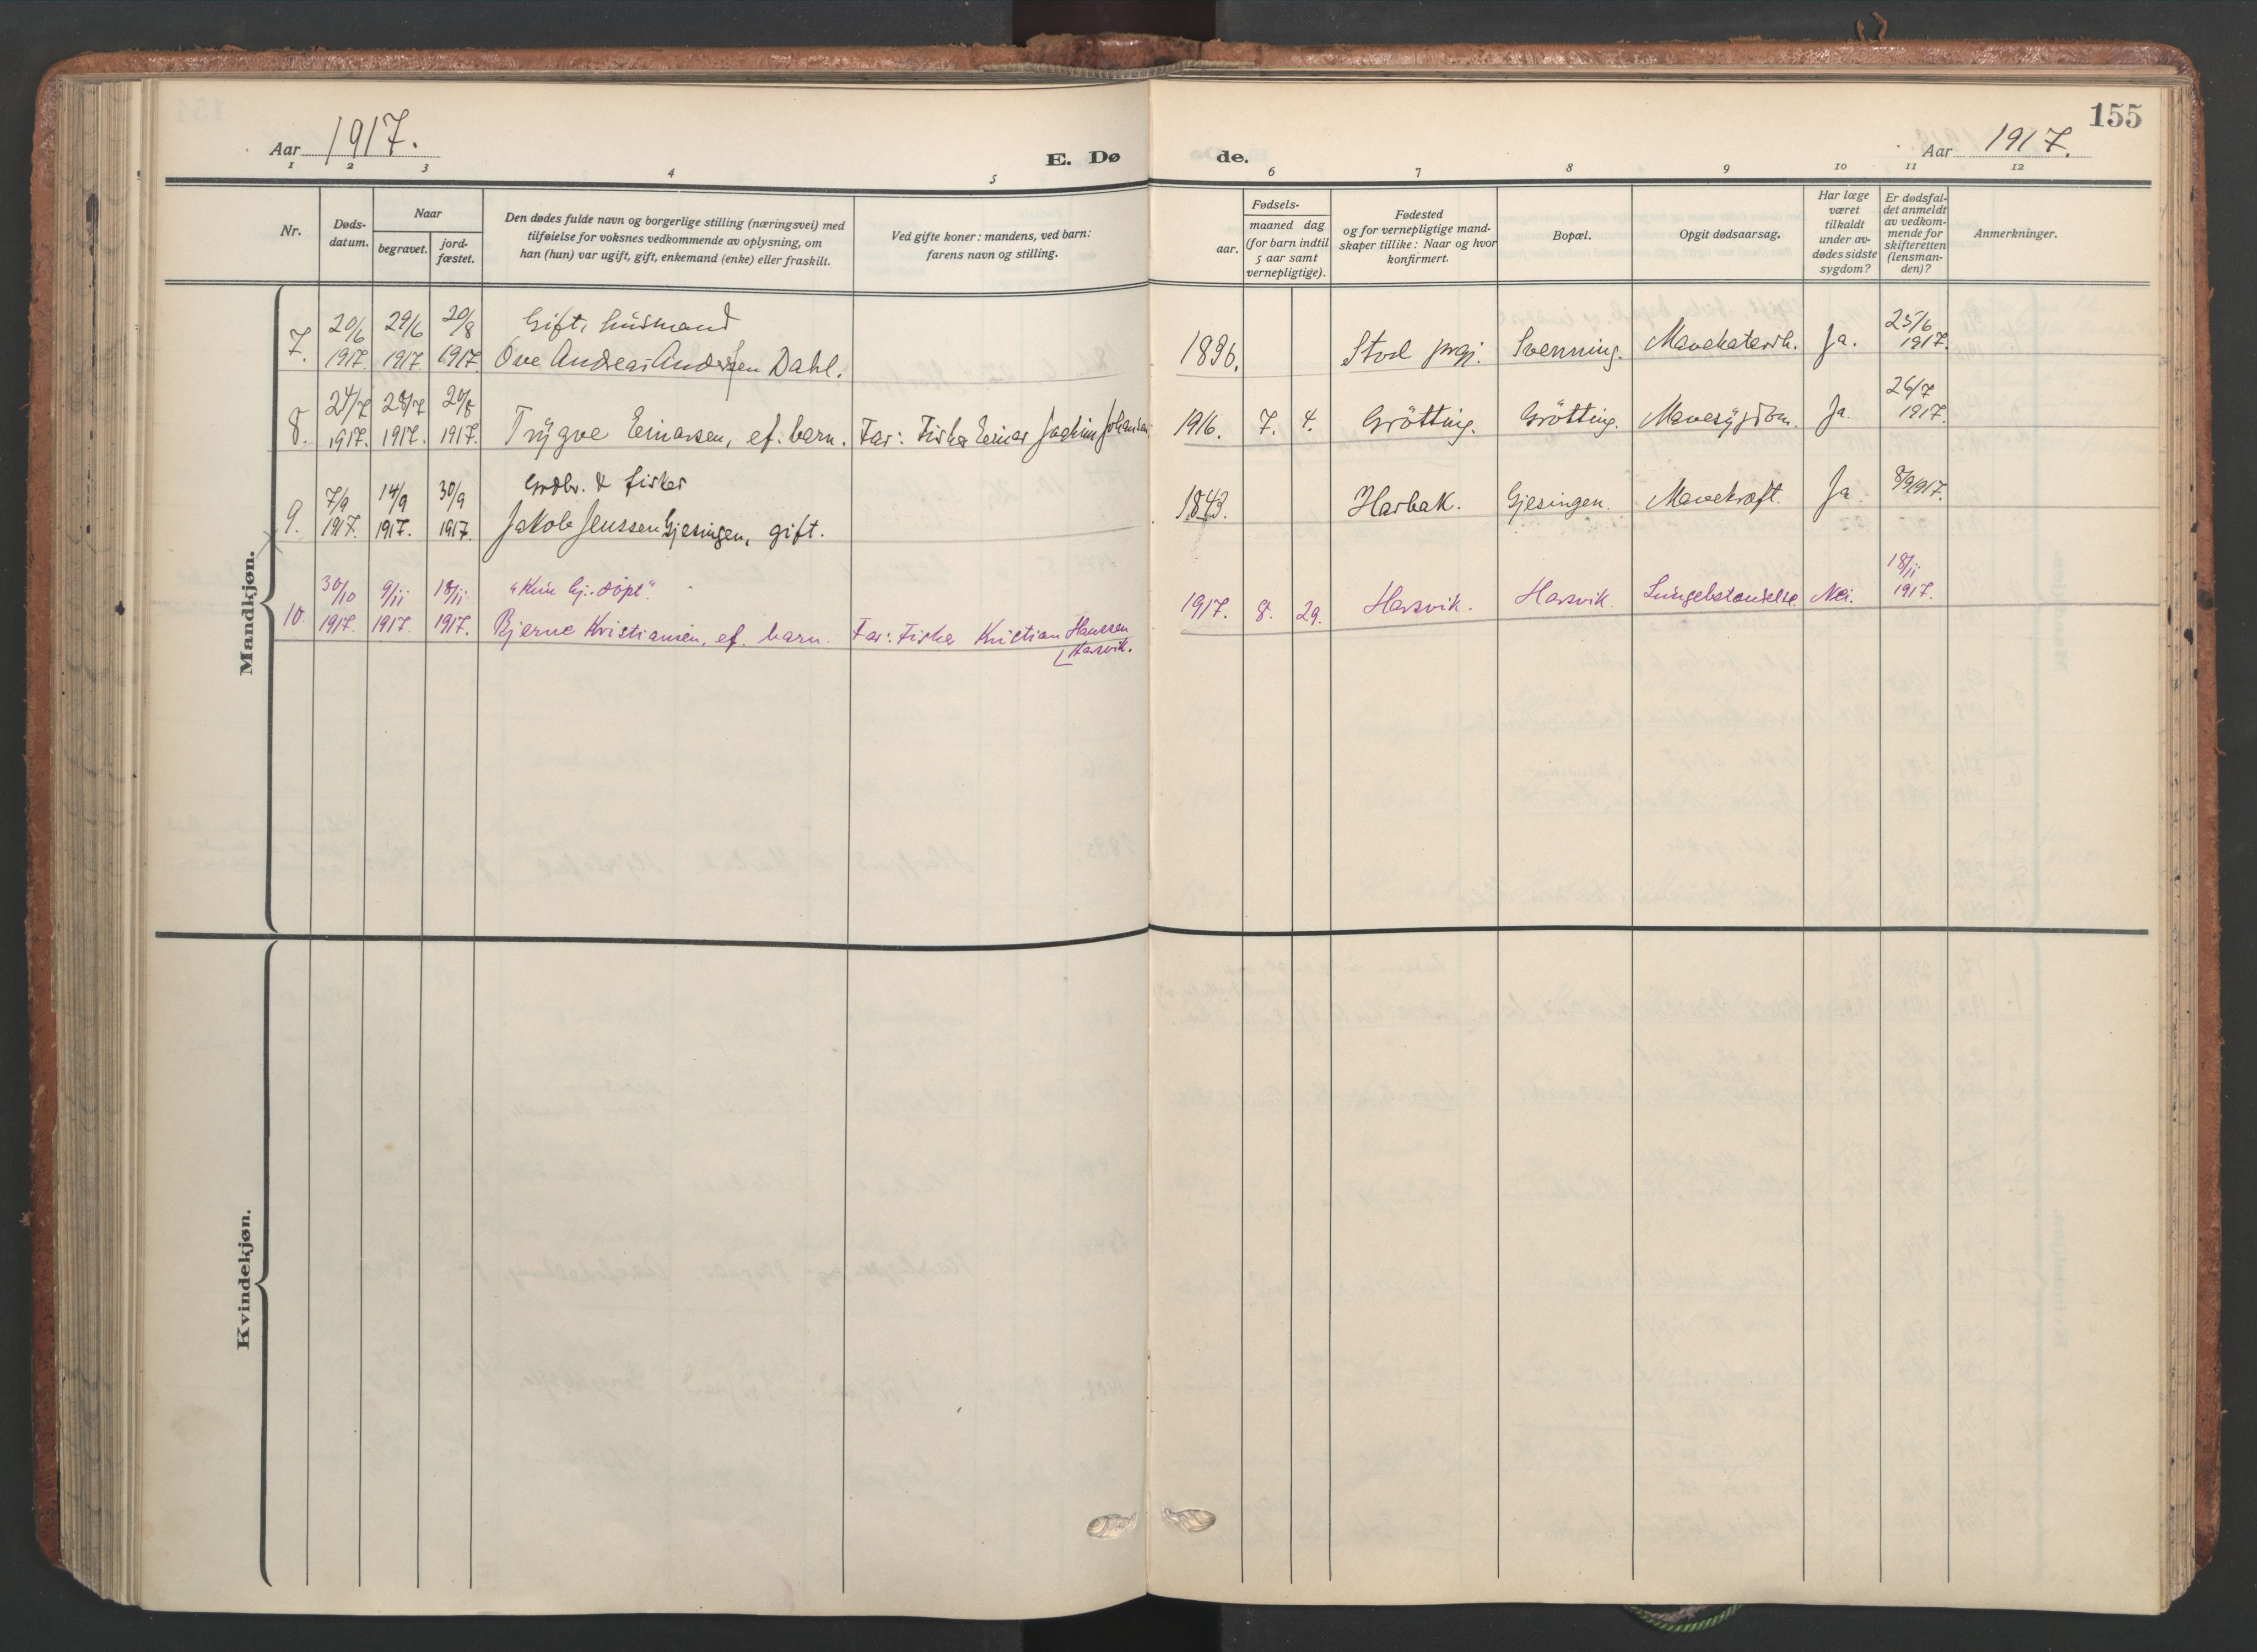 155
Aar 1917.
E. Dø
de.
Aar 1917.
1 2 3 4 5 6 7 8 9 10 11 12
Nr.
Døds-
datum.
Naar
begravet.
jord-
fæstet.
Den dødes fulde navn og borgerlige stilling (næringsvei) med
tilføielse for voksnes vedkommende av oplysning, om
han (hun) var ugift, gift, enkemand (enke) eller fraskilt.
Ved gifte koner: mandens, ved barn:
farens navn og stilling.
Fødsels-
aar.
maaned dag
(for barn indtil
5 aar samt
vernepligtige).
Fødested
og for vernepligtige mand-
skaper tillike: Naar og hvor
konfirmert.
Bopæl.
Opgit dødsaarsag.
Har læge
været
tilkaldt
under av-
dødes sidste
sygdom?
Er dødsfal-
det anmeldt
av vedkom-
mende for
skifteretten
(lensman-
den)?
Anmerkninger.
Mandkjøn.
7. 20/6 1917. 29/6 1917 20/8 1917.
Gift, husmand
Ove Andreas Andersen Dahl.
1836. Stod prgj. Svenning. Mavekatarrh. Ja. 25/6 1917.
8. 24/7 1917. 28/7 1917. 20/8 1917.
Trygve Einarsen, ef. barn. Far: Fisker Einar Joakim Johansen
1916. 7. 4. Grötting. Grötting. Mavesygdom. Ja. 26/7 1917.
9. 7/9 1917. 14/9 1917. 30/9 1917.
Grdbr. & fisker
Jakob Jenssen Gjesingen, gift.
1843. Harbak. Gjesingen. Mavekræft. Ja 8/9 1917.
10. 30/10 1917. 9/11 1917. 18/11 1917.
"Kun hj. döpt".
Bjarne Kristiansen, ef. barn. Far: Fisker Kristian Hanssen
Harsvik.
1917. 8. 29. Harsvik. Harsvik. Lungebetændelse. Nei. 18/11 1917.
Kvindekjøn.